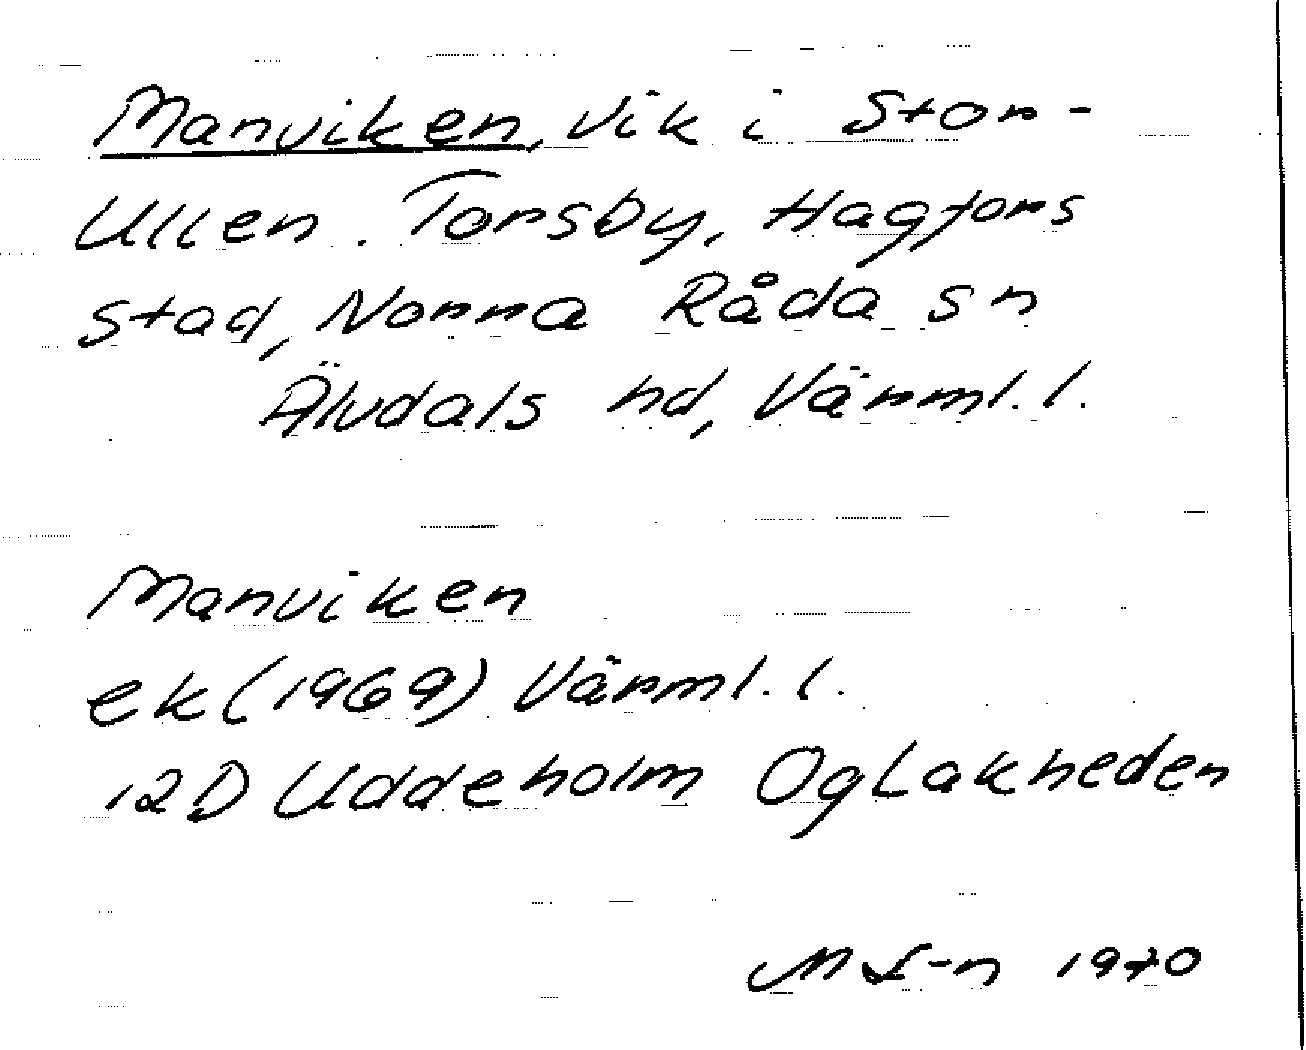 Manviken, vik i Stor-
Ullen. Torsby, Hagfors
stad, Norra Råda sn
Älvdals hd, Värml. l.
Manviken
ek (1969) Värml. l.
12D Uddeholm Og Lakheden
M L-n 1970